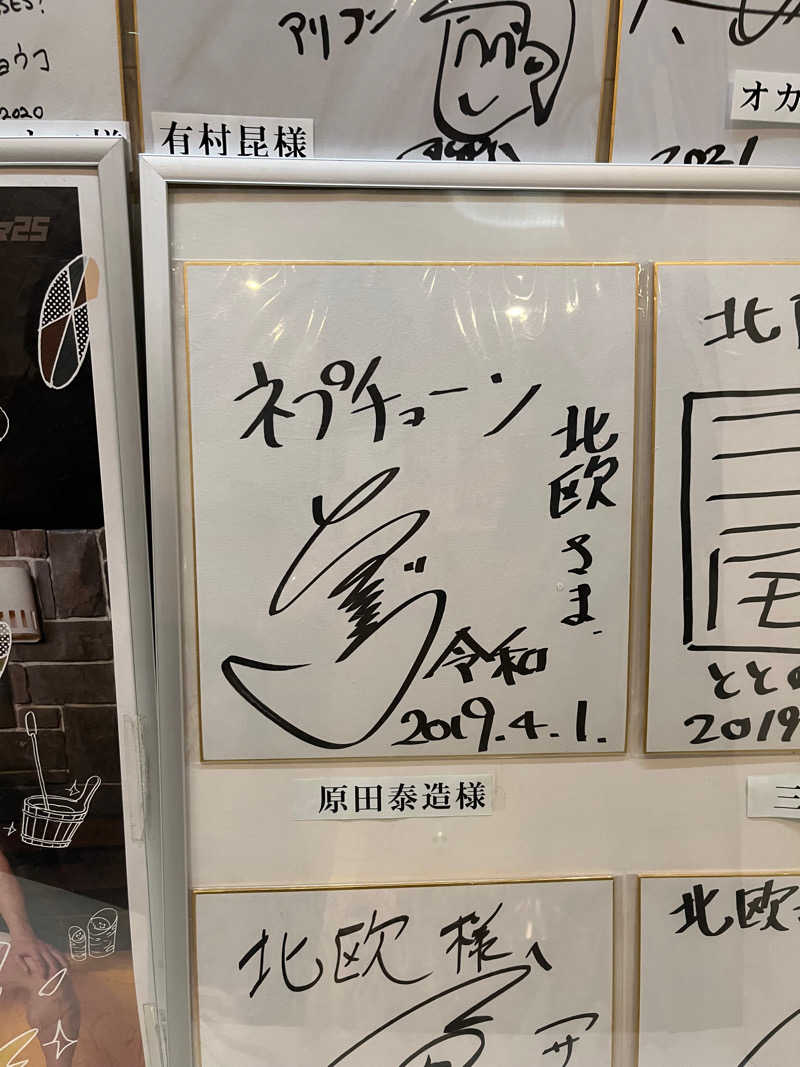 SES?
2020
アリコン
有村昆様
オカ
2021
ネプチューン
北欧さま.
令和
2019.4.1.
原田泰造様
北
ととの
2019
三
北欧様
サ
北欧